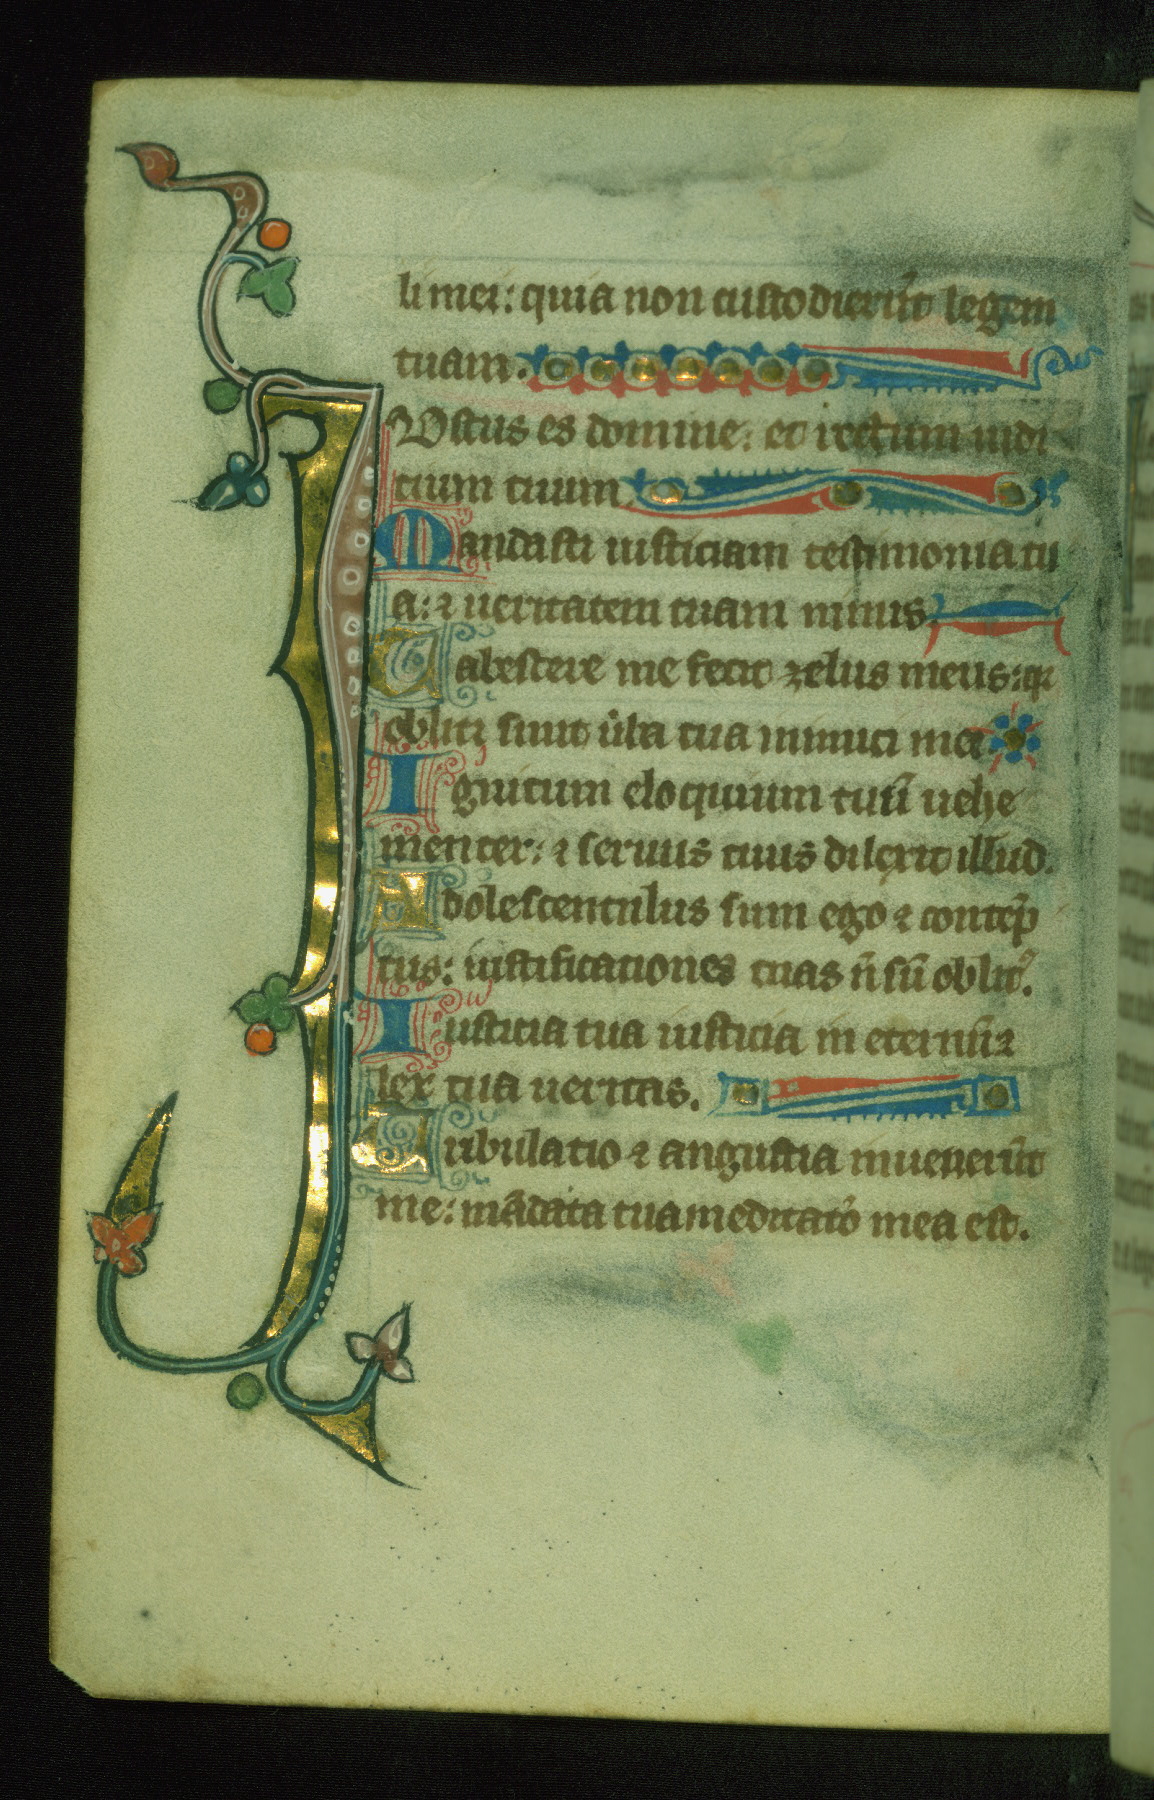 li mei: quia non custodierūt legem
tuam.
Iustus es domine: et rectum iudi
cium tuum
Mandasti iusticiam testimonia tu
a: ⁊ ueritatem tuam nimis.
Tabescere me fecit zelus meus: qꝛ
obliti sunt ũba tua inimici mei
Ignitum eloquium tuū uehe
menter: ⁊ seruus tuus dilexit illud.
Adolescentulus sum ego ⁊ contēp
tus: iustificationes tuas ñ sū oblitꝰ.
Iusticia tua iusticia in eternū: ⁊
lex tua ueritas.
Tribulatio ⁊ angustia inuenerūt
me: mādata tua meditatō mea est.